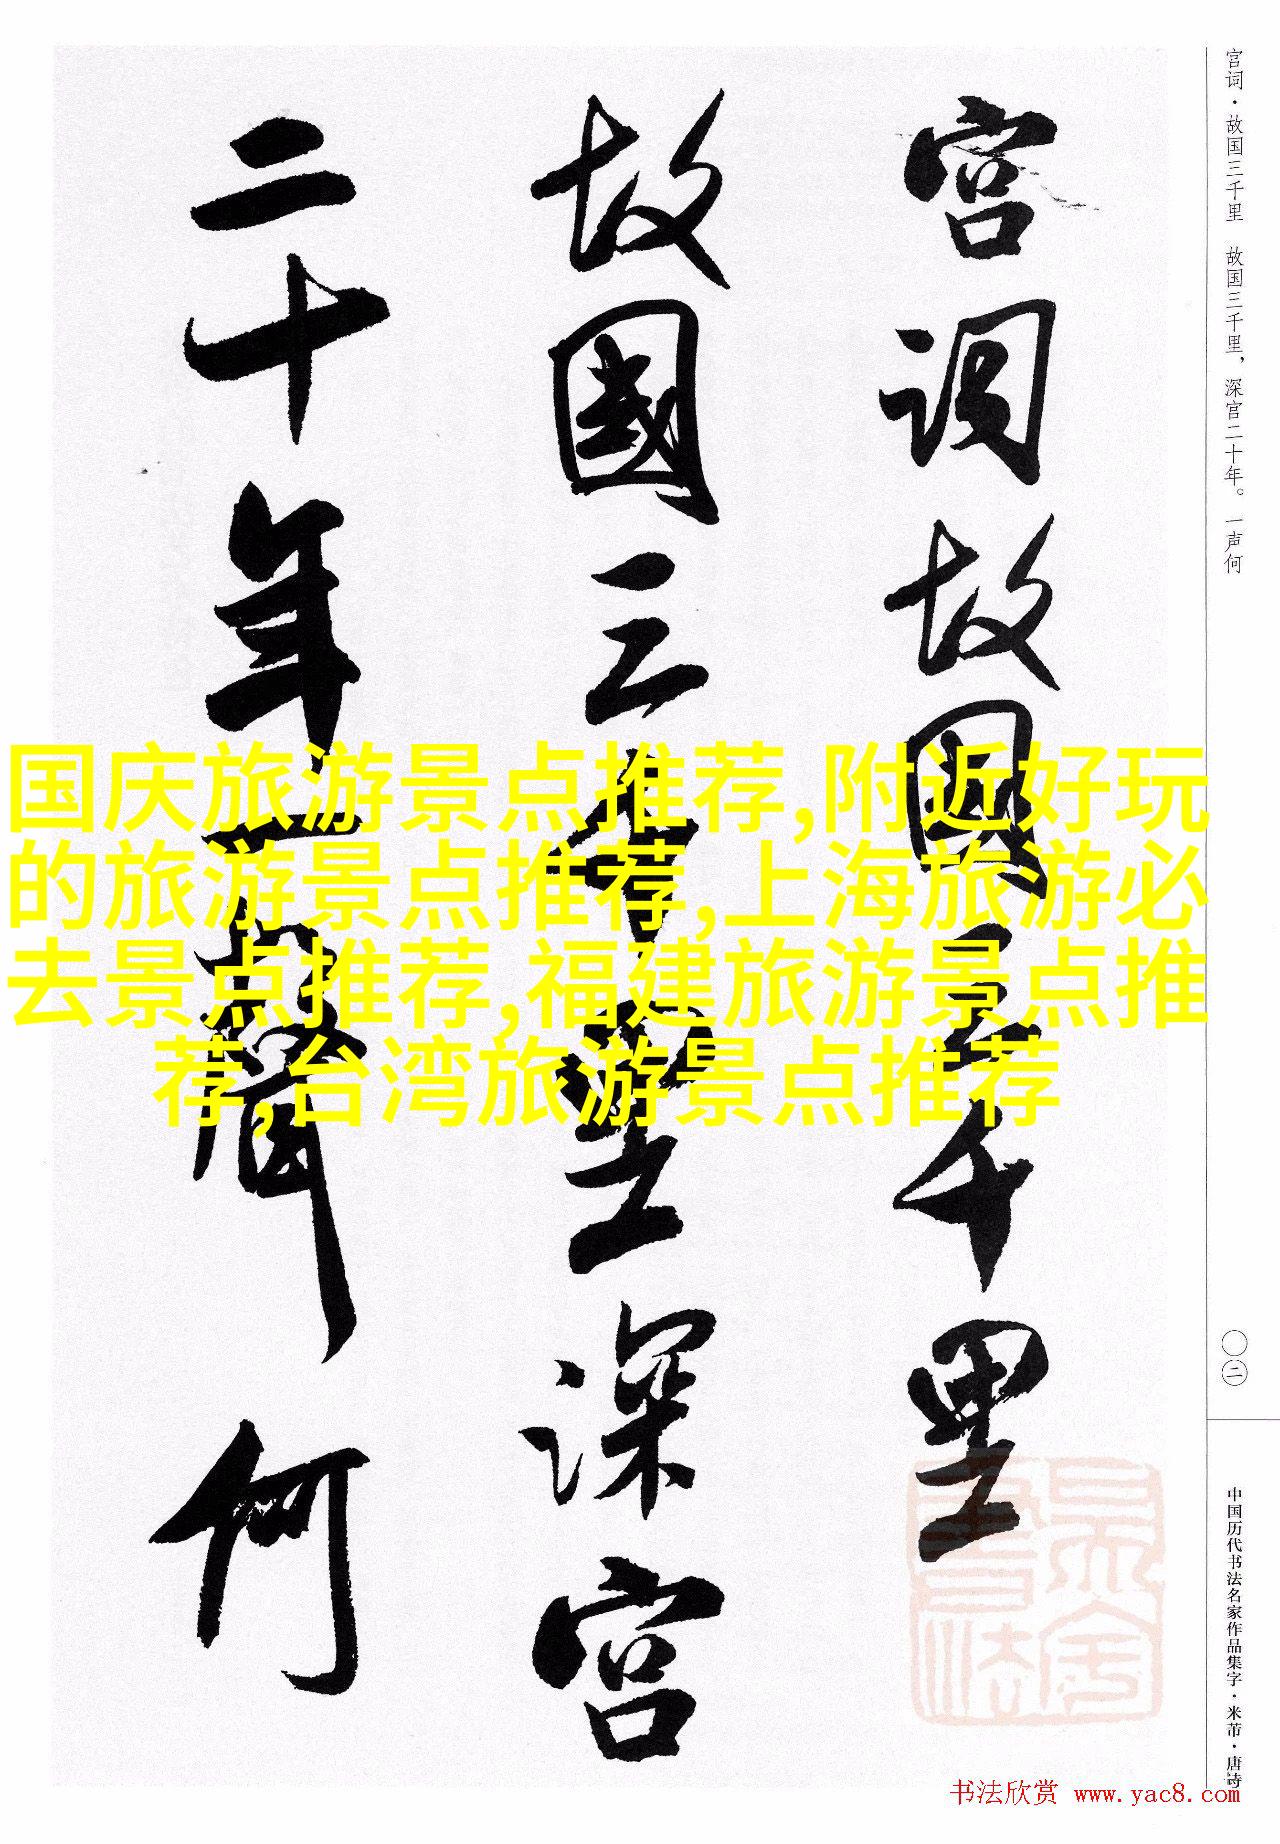 宫词·故国三千里 故国三千里，深宫二十年。一声何
宫词故國三千里
故國三千里深宫
二十年一聲何
国庆旅游景点推荐,附近好玩
的旅游景点推荐,上海旅游必
去景点推荐,福建旅游景点推
荐,台湾旅游景点推荐
〇二
中国历代书法名家作品集字·米芾·唐诗
书法欣赏 www.yac8.com